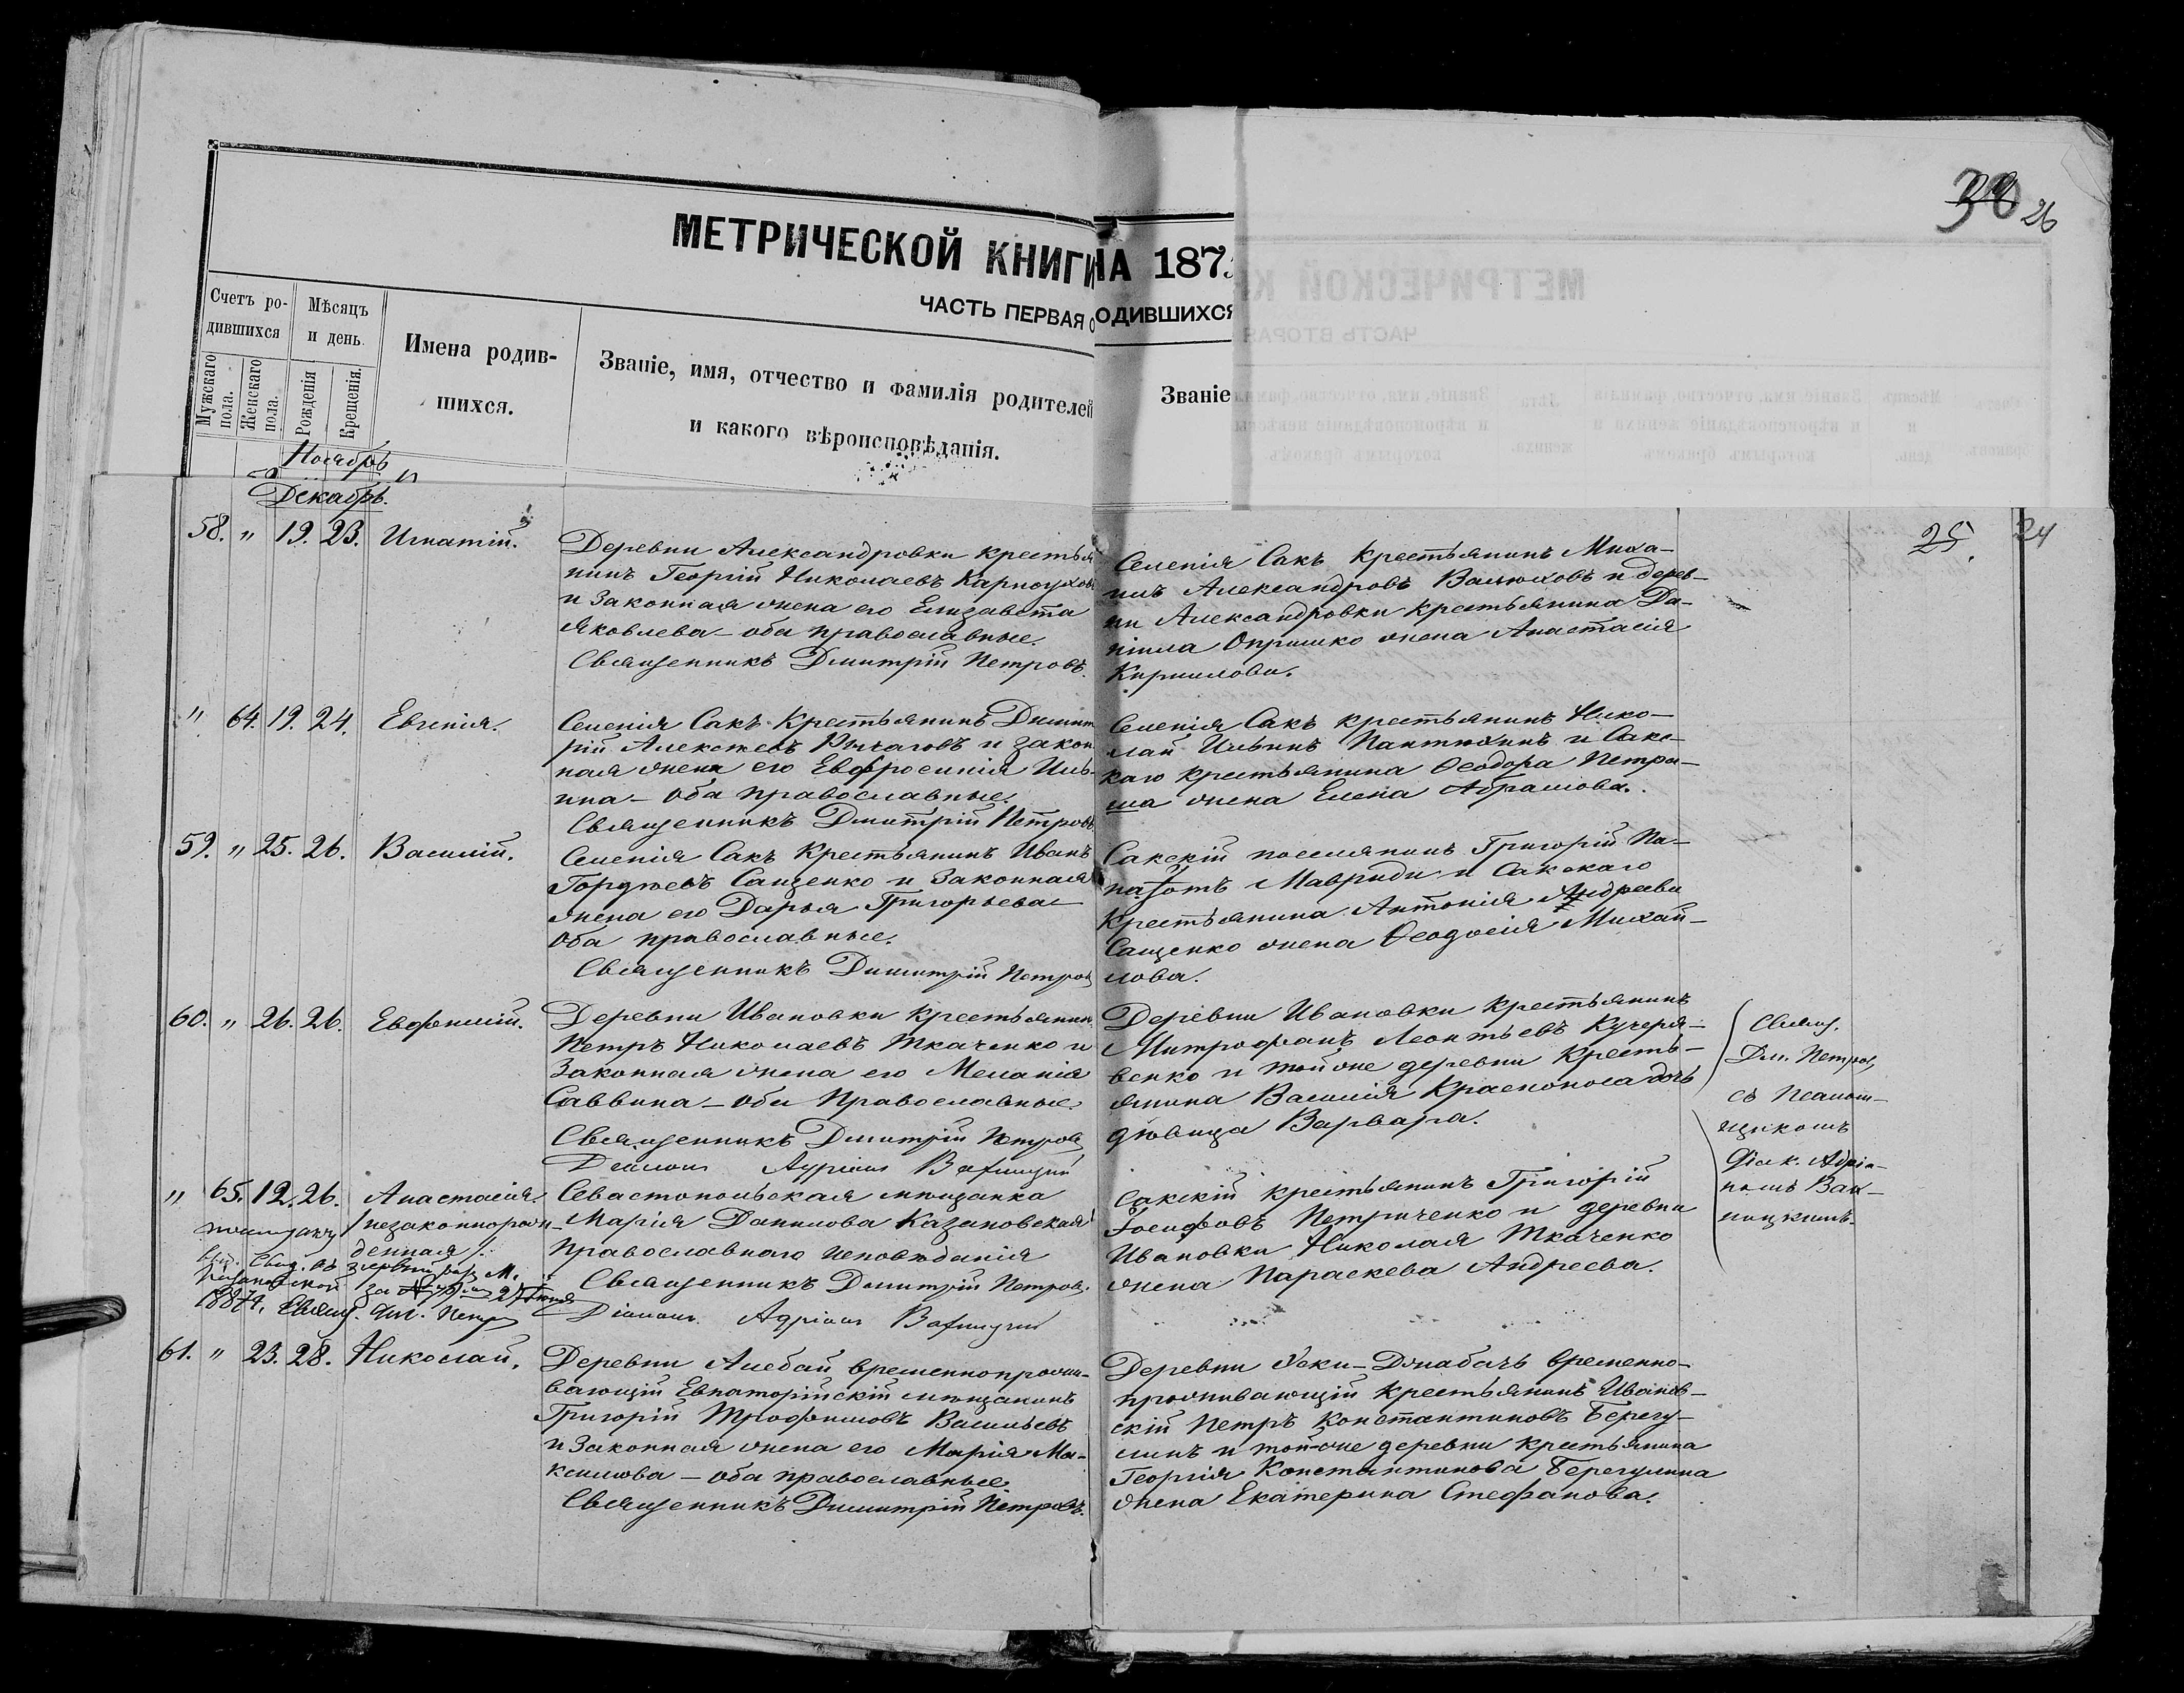 30 26
МЕТРИЧЕСКОЙ КНИГИ НА 187
ЧАСТЬ ПЕРВАЯ О РОДИВШИХСЯ
Счетъ ро-
дившихся
Мужскаго пола.
Женскаго пола.
Мѣсяцъ
и день.
Рожденія
Крещенія.
Имена родив-
шихся.
Званіе, имя, отчество и фамилія родителей
и какого вѣроисповѣданія.
Званіе
Ноябрь
Декабрь.
25. 24
58. " 19. 23. Игнатій.
Деревни Александровки крестья
нинъ Георгій Николаевъ Карпоуховъ
и законная жена его Елизавета
Яковлева – оба православные.
Священникъ Дмитрій Петровъ.
Селенія Сакъ крестьянинъ Миха-
илъ Александровъ Валюховъ и дерев-
ни Александровки крестьянина Да-
ніила Опришко жена Анастасія
Кириллова.
" 64. 19. 24. Евгенія.
Селенія Сакъ крестьянинъ Димит
рій Алексѣевъ Рычаговъ и закон
ная жена его Евфросинія Иль-
ина – оба православные.
Священникъ Дмитрій Петровъ.
Селенія Сакъ крестьянинъ Нико-
лай Ильинъ Пантюхинъ и Сакс-
каго крестьянина Ѳеодора Петра-
ша жена Елена Абрамова.
59. " 25. 26. Василій.
Селенія Сакъ крестьянинъ Иванъ
Гордѣевъ Сащенко и законная
жена его Дарья Григорьева –
оба православные.
Священникъ Димитрій Петровъ
Сакскій поселянинъ Григорій Па-
Мавриди и Сакскаго
крестьянина Антонія Андреева
Сащенко жена Ѳеодосія Михай-
лова.
60. " 26. 26. Евфимій.
Деревни Ивановки крестьянинъ
Петръ Николаевъ Ткаченко и
законная жена его Меланія
Саввина – оба православные.
Священникъ Дмитрій Петровъ
Діаконъ Адріанъ
Деревни Ивановки крестьянинъ
Митрофанъ Леонтьевъ Кучеря-
венко и той же деревни кресть-
янина Василія Красноноса дочь
дѣвица Варвара.
Свящ.
Дм. Петровъ
съ Псаломъ-
щикомъ
Діак. Адріа-
номъ
" 65. 12. 26. Анастасія.
/незаконнорож-
денная/.
Севастопольская мѣщанка
Марія Данилова Казановская
православнаго исповѣданія
Священникъ Дмитрій Петровъ.
Діаконъ Адріанъ
Сакскій крестьянинъ Григорій
Іосифовъ Петриченко и деревни
Ивановки Николая Ткаченко
жена Параскева Андреева.
выд. свид.
Казановской за № 27 Іюня
1887 г. Свящ. Дм. Петровъ
61. " 23. 28. Николай.
Деревни Алебай временнопрожи-
вающій Евпаторійскій мѣщанинъ
Григорій Трофимовъ Васильевъ
и законная жена его Марія Ма-
ксимова – оба православные.
Священникъ Димитрій Петровъ.
Деревни Ески-Джабачь временно-
проживающій крестьянинъ Иванов-
скій Петръ Константиновъ Берегу-
линъ и той-же деревни крестьянина
Георгія Константинова Берегулина
жена Екатерина Стефанова.